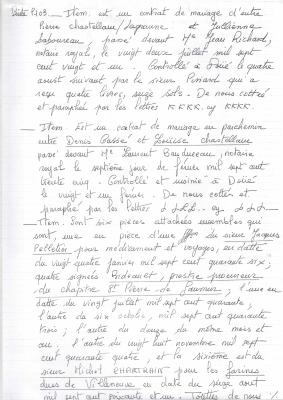 Suite P403 — Item est un contrat de mariage d'entre
Pierre chastellain/ et Guillemine
Laboureau, passé devant Me Jean Richard,
notaire royal, le vingt deux juillet mil sept
cent vingt et un. Controllé à Doué le quatre
aoust suivant par le sieur Pinard qui a
reçu quatre livres, seize sols. De nous cottés
et paraphé par les lettres KKKK. cy KKKK.
— Item Est un contrat de mariage en parchemin
entre Denis Gasse et Louise chastellain
passé devant Me Laurent Bauduceau, notaire
royal le septième jour de février mil sept cent
trente cinq. Controllé et insinué à Doué
le vingt et un février. De nous cotté et
paraphé par les lettres LLLL. cy LLL —
— Item. Sont six pièces attachées ensembles qui
sont, une en pièce d'une du sieur Jacques
Pelletier pour médicament et voyages, en datte
du vingt quatre janvier mil sept cent quarante six;
quatre signées Andouet, prestre procureur
du chapitre St Pierre de Saumur; l'une en
datte du vingt juillet mil sept cent quarante;
l'autre du six octobre, mil sept cent quarante
trois; l'autre du douze du même mois et
an; l'autre du vingt huit novembre mil sept
cent quarante quatre, et la sixième est du
sieur Michel CHARTRAIN pour les farines
dues de Villeneuve en date du seize aout
mil sept cent soixante et un. Toutes de nous /.